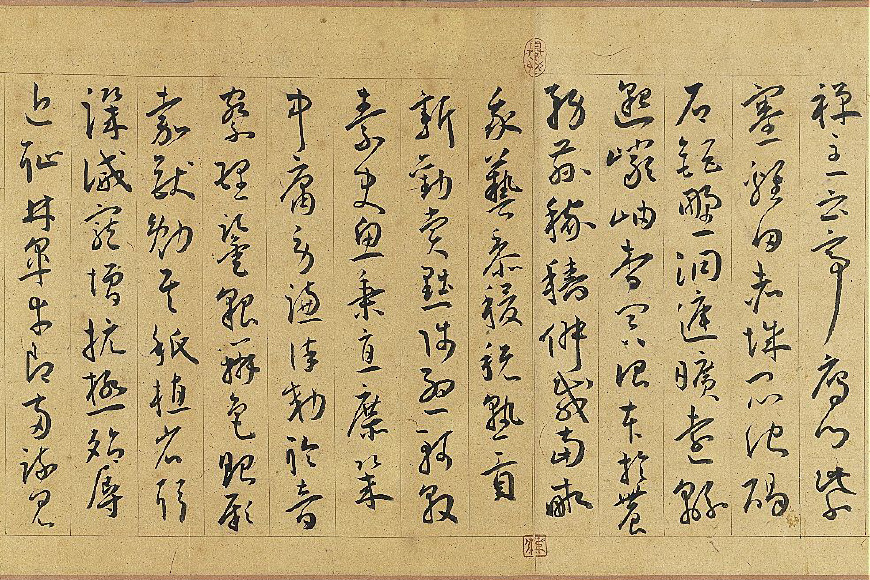 禪主云亭鴈門紫
塞雞田赤城昆池碣
石鉅野洞庭曠遠綿
邈巖岫杳冥治本於農
務茲稼穡俶載南畝
我藝黍稷稅熟貢
新勸賞黜陟孟軻敦
素史魚秉直庶幾
中庸勞謙謹敕聆音
察理鑒貌辨色貽厥
嘉猷勉其祗植省躬
譏誡寵增抗極殆辱
近恥林皋幸即兩疏見